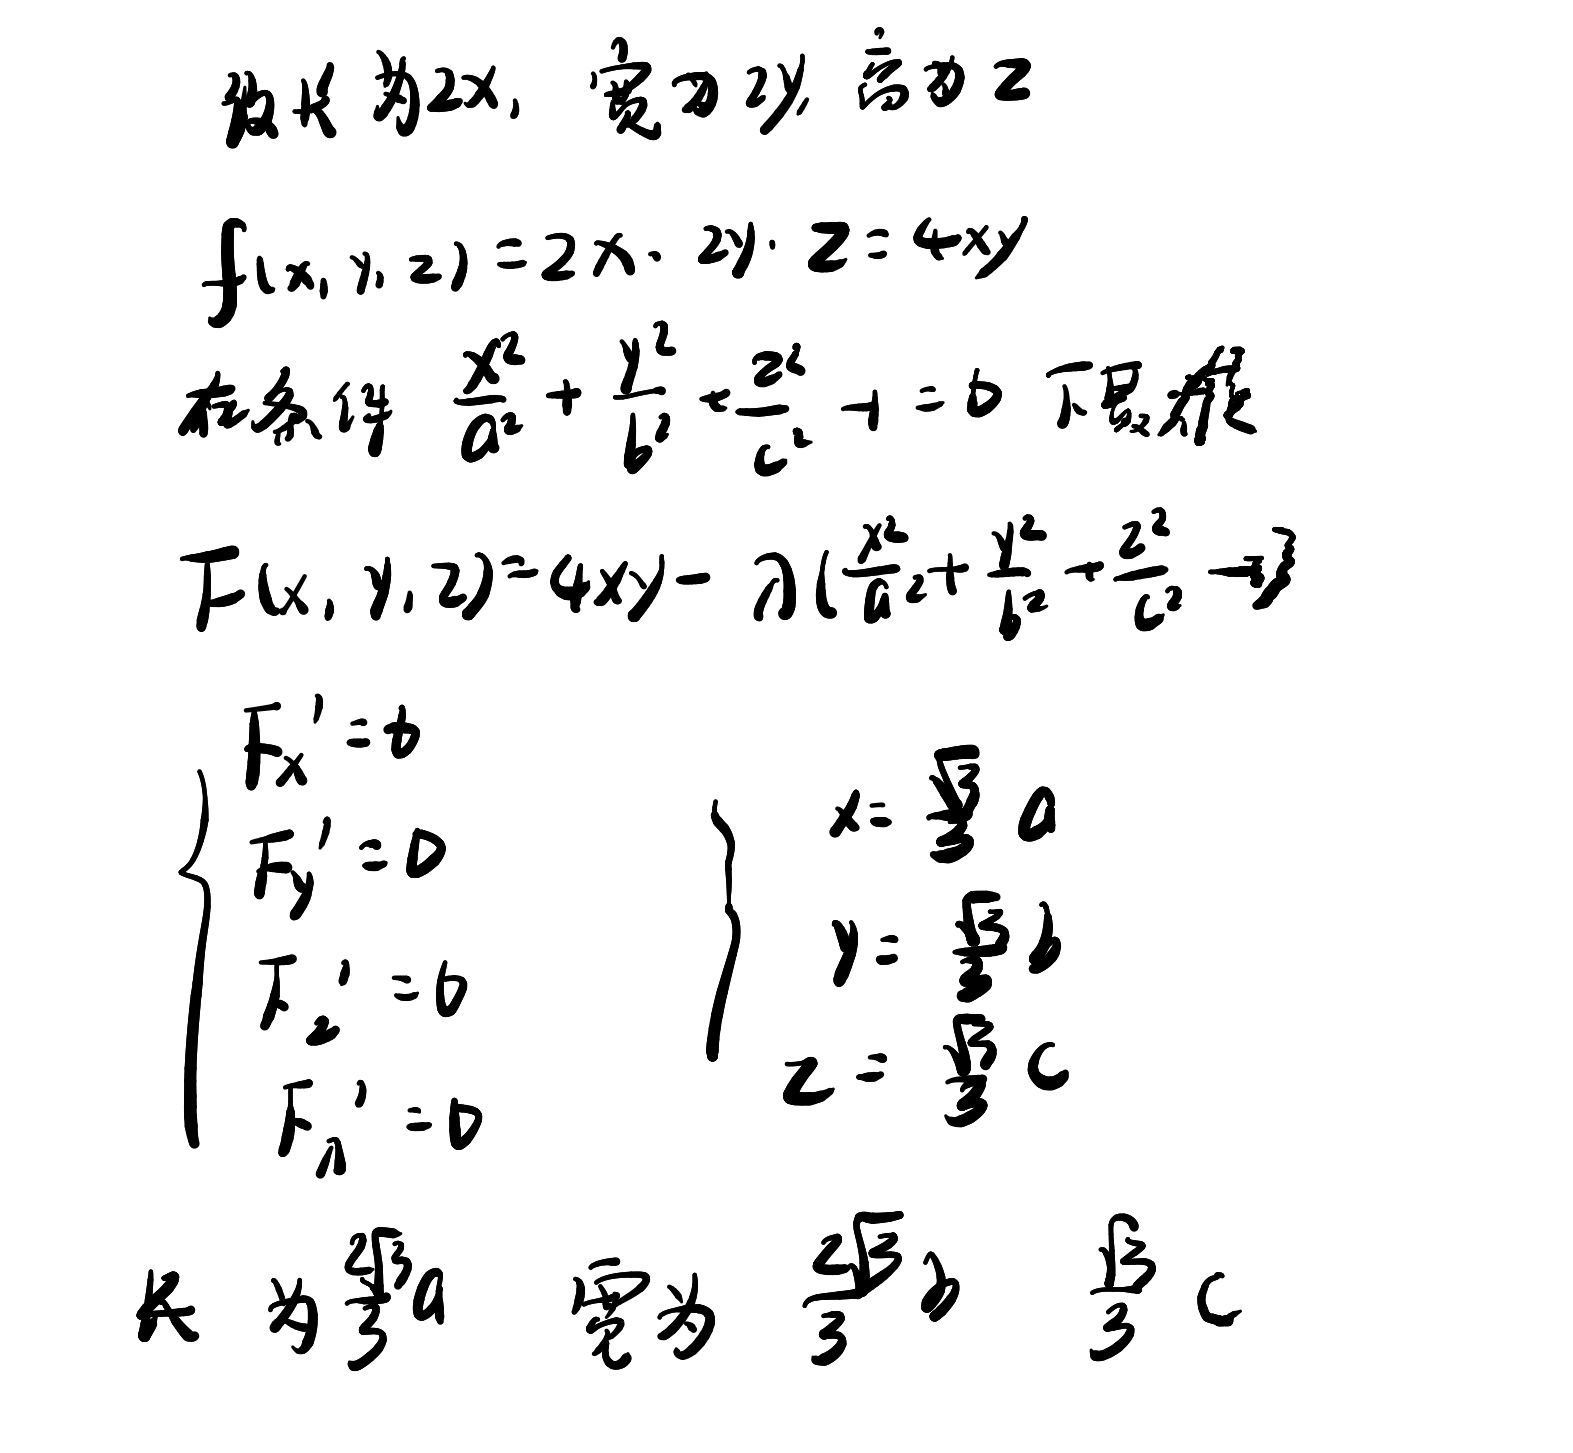 设长为2x, 宽为2y, 高为z
f(x, y, z) = 2x · 2y · z = 4xy
在条件 x²/a² + y²/b² + z²/c² - 1 = 0 下
F(x, y, z) = 4xy - λ(x²/a² + y²/b² + z²/c² - 1)
Fx' = 0
Fy' = 0
Fz' = 0
Fλ' = 0
x = √3/3 a
y = √3/3 b
z = √3/3 c
长为 2√3/3 a 宽为 2√3/3 b √3/3 c